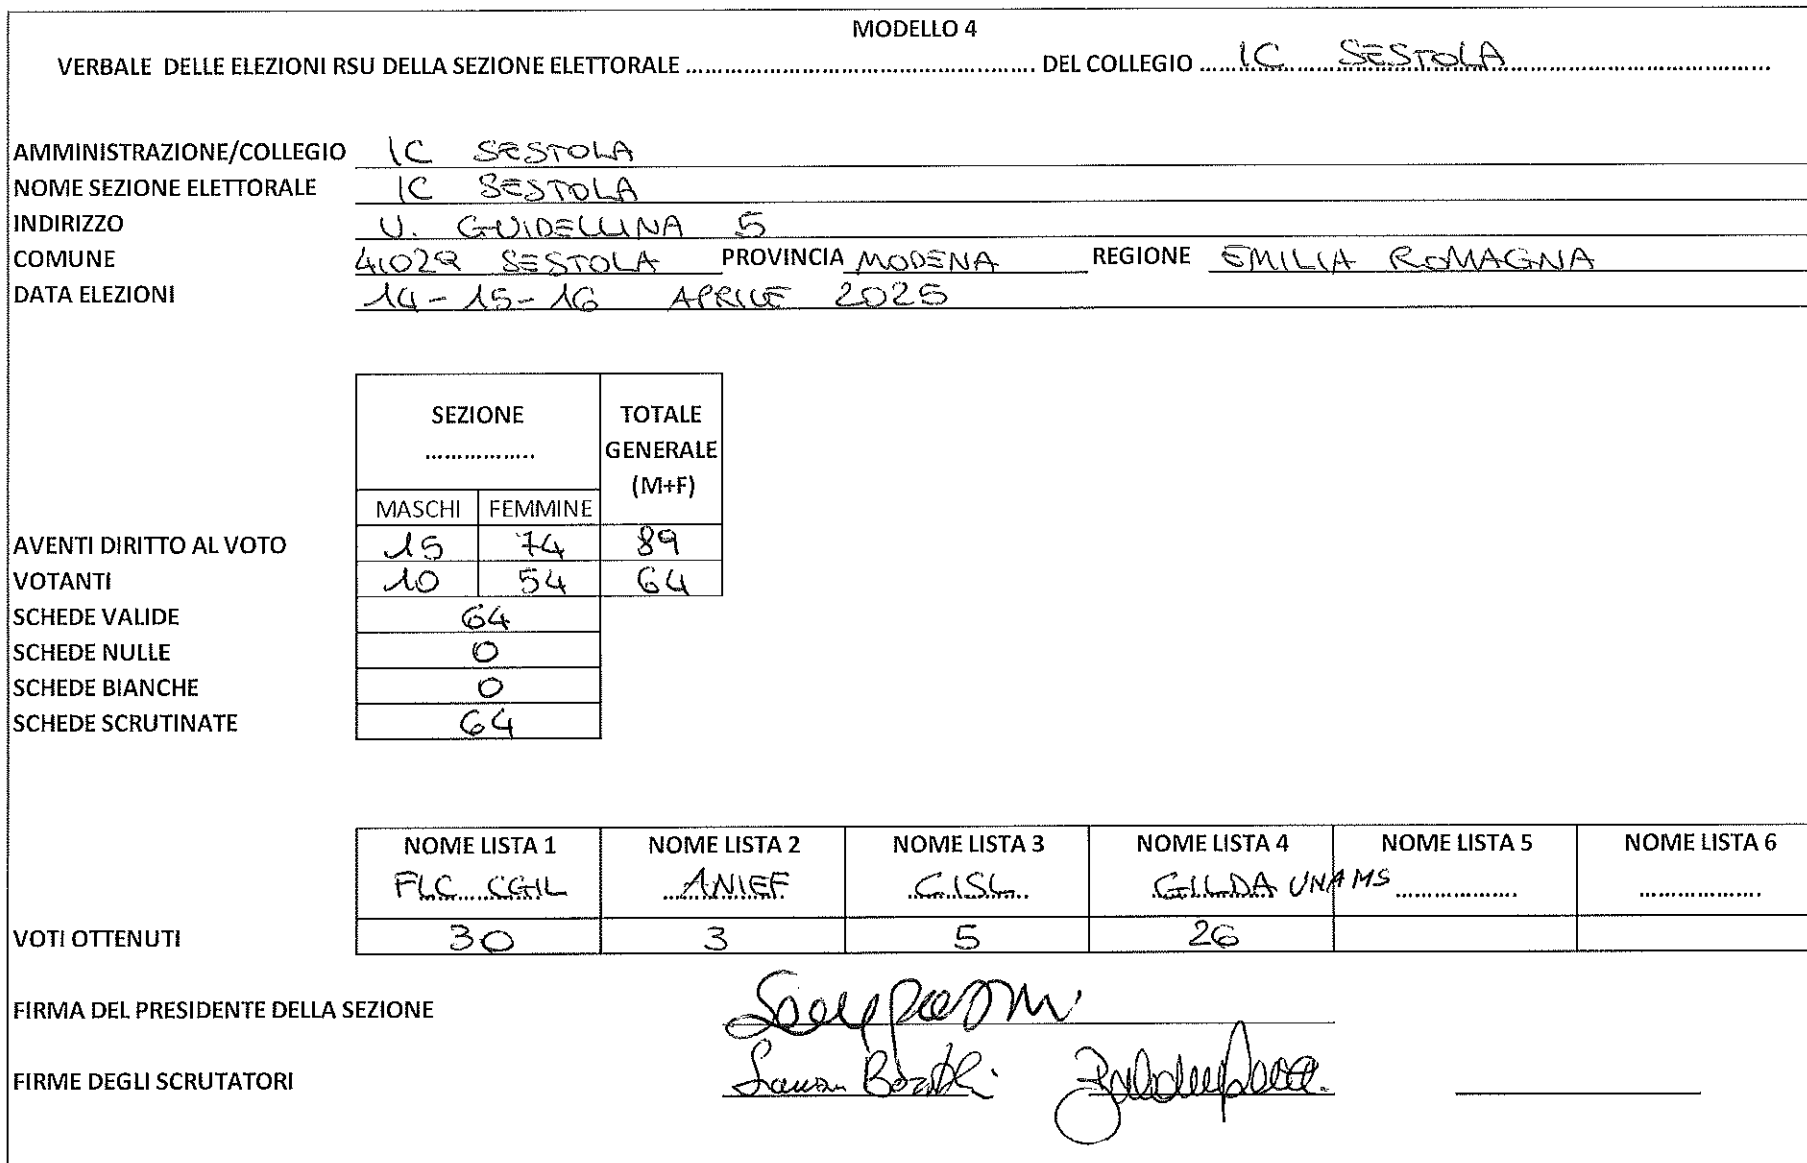 MODELLO 4
VERBALE DELLE ELEZIONI RSU DELLA SEZIONE ELETTORALE .................................................. DEL COLLEGIO ..... IC SESTOLA .....
AMMINISTRAZIONE/COLLEGIO IC SESTOLA
NOME SEZIONE ELETTORALE IC SESTOLA
INDIRIZZO V. GUIDELLINA 5
COMUNE 41029 SESTOLA PROVINCIA MODENA REGIONE EMILIA ROMAGNA
DATA ELEZIONI 14-15-16 APRILE 2025
SEZIONE ................. TOTALE GENERALE (M+F)
MASCHI FEMMINE
AVENTI DIRITTO AL VOTO 15 74 89
VOTANTI 10 54 64
SCHEDE VALIDE 64
SCHEDE NULLE 0
SCHEDE BIANCHE 0
SCHEDE SCRUTINATE 64
NOME LISTA 1 NOME LISTA 2 NOME LISTA 3 NOME LISTA 4 NOME LISTA 5 NOME LISTA 6
FLC CGIL ANIEF CISL GILDA UNAMS .................. ..................
VOTI OTTENUTI 30 3 5 26
FIRMA DEL PRESIDENTE DELLA SEZIONE
FIRME DEGLI SCRUTATORI